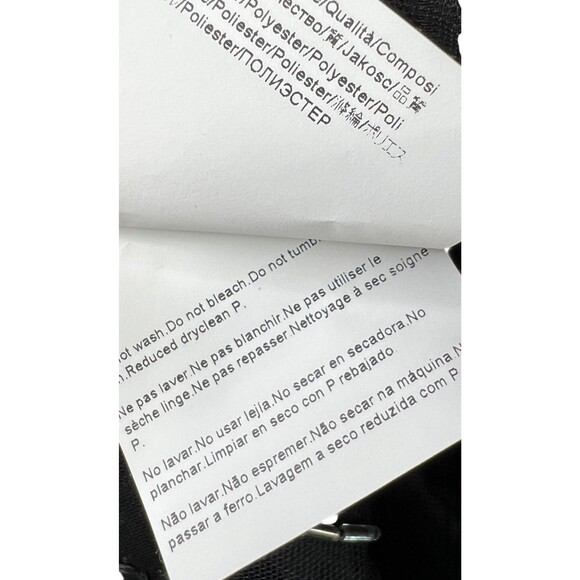 /Qualità/Composi
чество/質/Jakosc/品質
/Polyester/Polyester/Poli
/Poliester/Poliester/滌綸/ポリエス
/ПОЛИЭСТЕР
ot wash.Do not bleach.Do not tumb
n.Reduced dryclean P.
Ne pas laver.Ne pas blanchir.Ne pas utiliser le
sèche linge.Ne pas repasser.Nettoyage à sec soigne
P.
No lavar.No usar lejía.No secar en secadora.No
planchar.Limpiar en seco con P rebajado.
Não lavar.Não espremer.Não secar na máquina.N
passar a ferro.Lavagem a seco reduzida com P